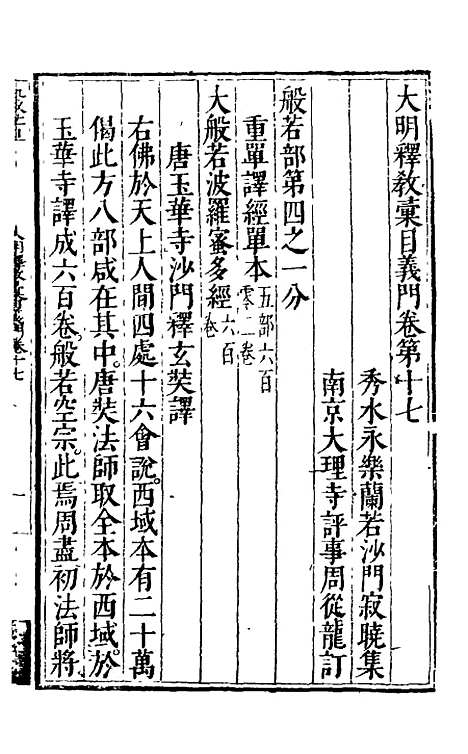 大明釋教彙目義門卷第十七
秀水永樂蘭若沙門寂曉集
南京大理寺評事周從龍訂
般若部第四之一分
重單譯經單本五部六百零二卷
大般若波羅蜜多經六百卷
唐玉華寺沙門釋玄奘譯
右佛於天上人間四處十六會說。西域本有二十萬
偈此方八部咸在其中。唐奘法師取全本於西域。於
玉華寺譯成六百卷。般若空宗。此焉周盡初法師將